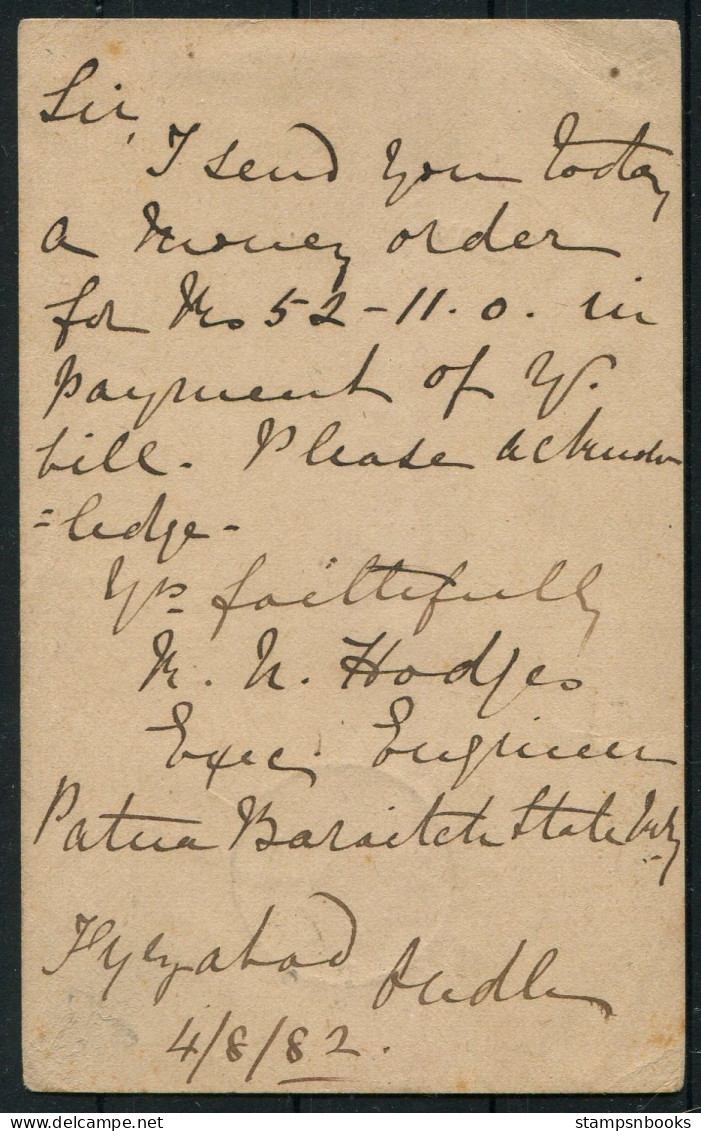 Sir,
I send you today
a money order
for Rs 52-11.0. in
payment of yr.
bill. Please acknow
=ledge-
Yrs faithfully
N. Hodges
Exec. Engineer
Patna Baraitch State Rly
Fyzabad Oudh
4/8/82.
stampsnbooks